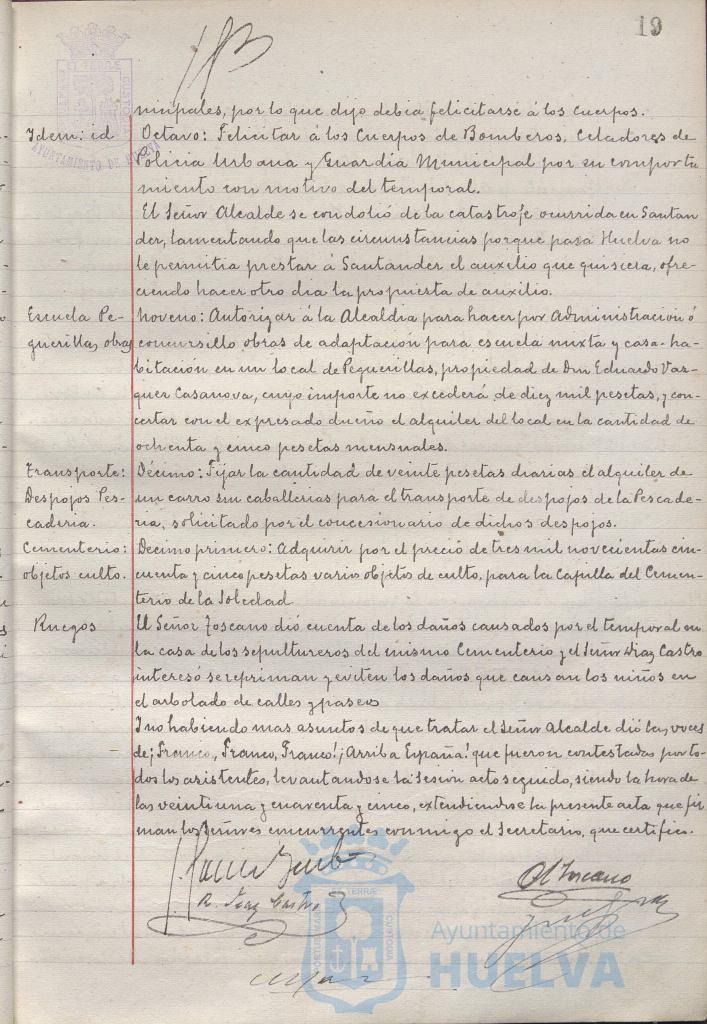 19
nicipales, por lo que dijo debia felicitarse á los Cuerpos.
Idem: id
Octavo: Felicitar á los Cuerpos de Bomberos, Celadores de
Policia Urbana y Guardia Municipal por su comporta
miento con motivo del temporal.
El Señor Alcalde se condolió de la catastrofe ocurrida en Santan
der, lamentando que las circunstancias porque pasa Huelva no
le permitia prestar á Santander el auxilio que quisiera, ofre-
ciendo hacer otro dia la propuesta de auxilio.
Escuela Pe-
guerillas, obras
Noveno: Autorizar á la Alcaldia para hacer por Administración ó
concursillo obras de adaptación para escuela mixta y casa-ha-
bitación en un local de Peguerillas, propiedad de Don Eduardo Vaz-
quez Casanova, cuyo importe no excederá de diez mil pesetas, y con-
certar con el expresado dueño el alquiler del local en la cantidad de
ochenta y cinco pesetas mensuales.
Transporte:
Despojos Pes-
caderia.
Décimo: Fijar la cantidad de veinte pesetas diarias el alquiler de
un carro sin caballerias para el transporte de despojos de la Pescade-
ria, solicitado por el concesionario de dichos despojos.
Cementerio:
objetos culto.
Decimo primero: Adquirir por el precio de tres mil novecientas cin-
cuenta y cinco pesetas varios objetos de culto, para la Capilla del Cemen-
terio de la Soledad
Ruegos
El Señor Toscano dió cuenta de los daños causados por el temporal en
la casa de los sepultureros del mismo Cementerio y el Señor Diaz Castro
interesó se repriman y eviten los daños que causan los niños en
el arbolado de calles y paseos
Y no habiendo mas asuntos de que tratar el Señor Alcalde dió las voces
de ¡Franco, Franco, Franco! ¡Arriba España! que fueron contestadas por to-
dos los asistentes, levantandose la Sesión acto seguido, siendo la hora de
las veintiuna y cuarenta y cinco, extendiendose la presente acta que fir
man los Señores concurrentes conmigo el Secretario, que certifico.
A. Diaz Castro
Toscano
Ayuntamiento de
HUELVA